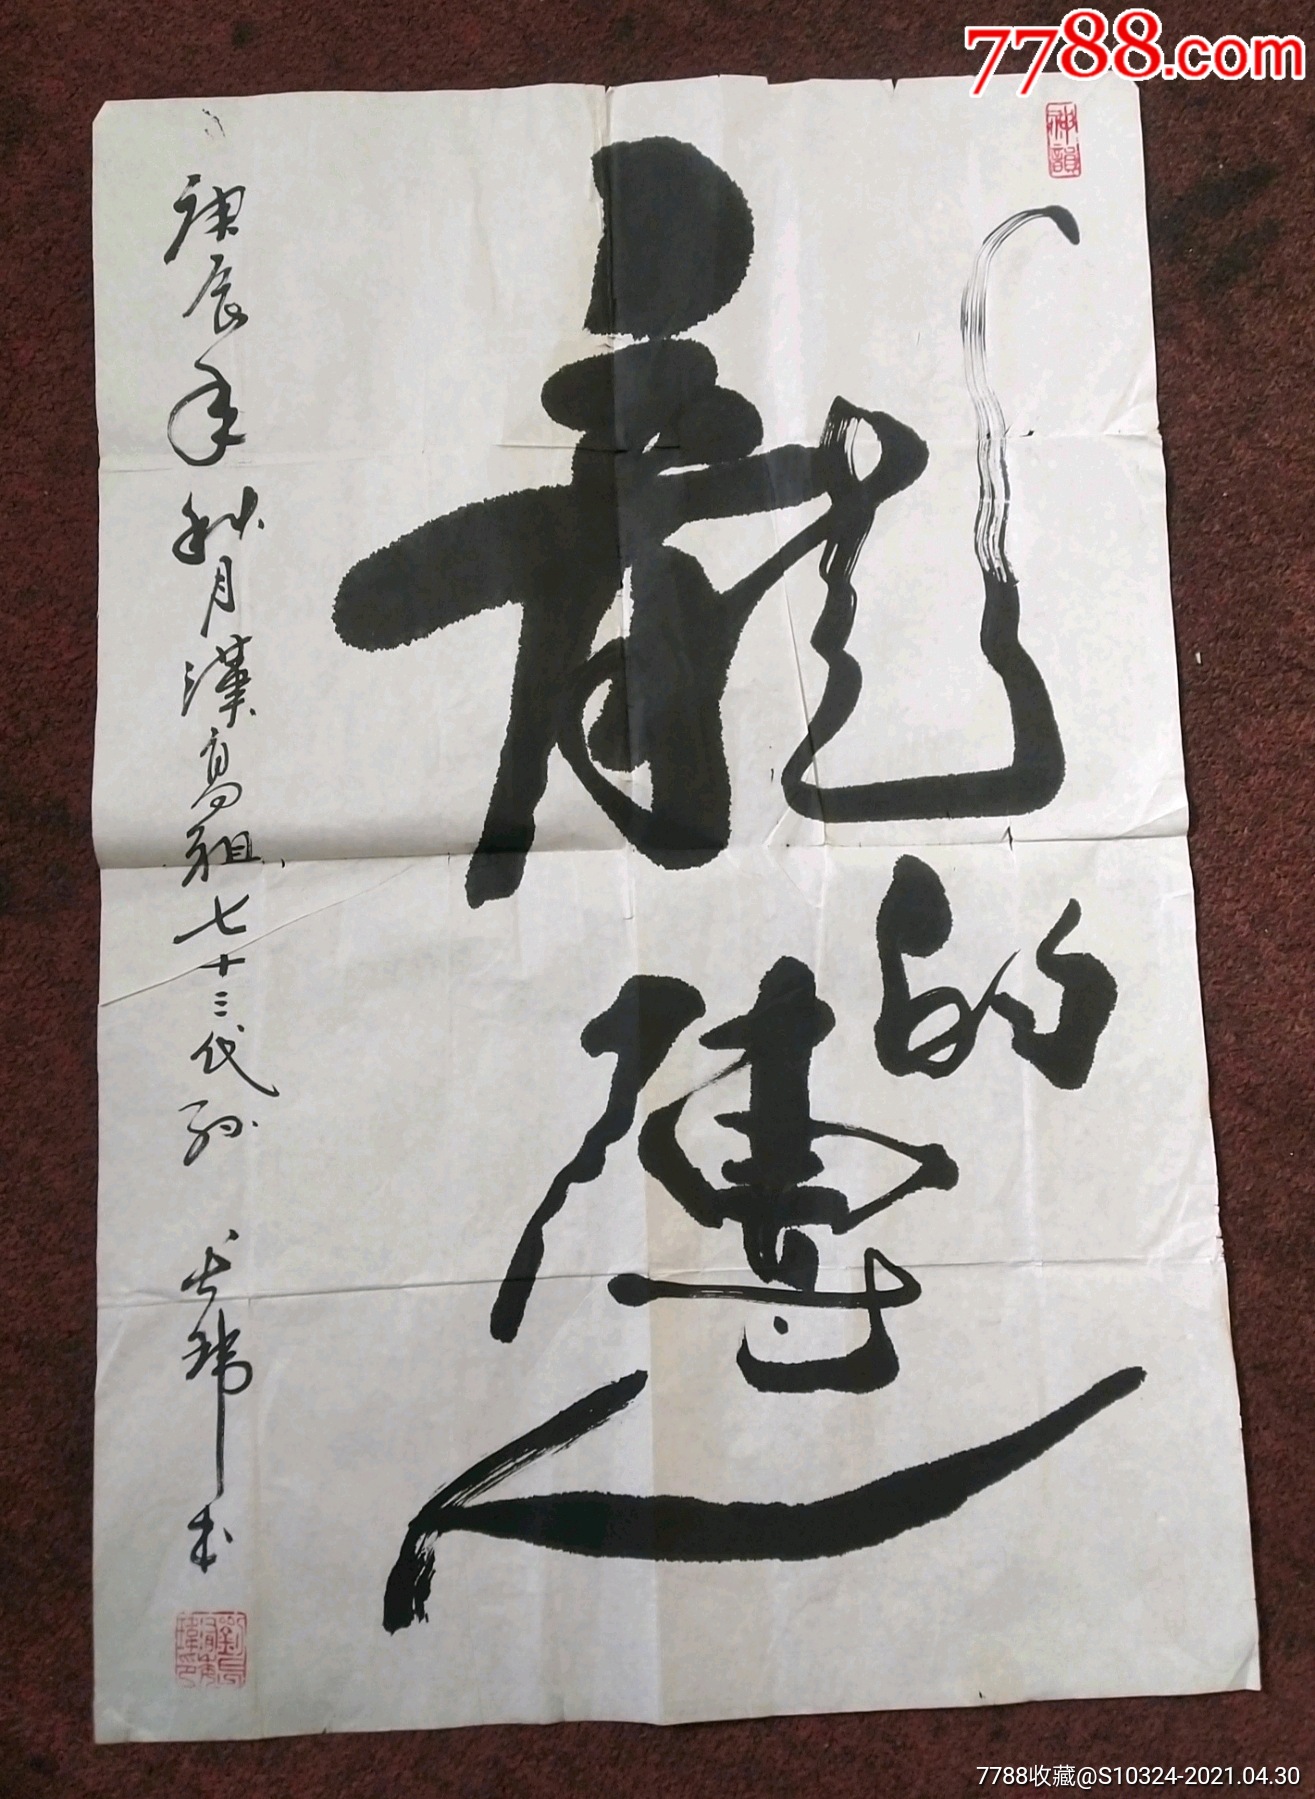 7788.com
神韻
龍的傳人
庚辰年秋月漢高祖七十三代孙 长瑋书
7788收藏@S10324-2021.04.30